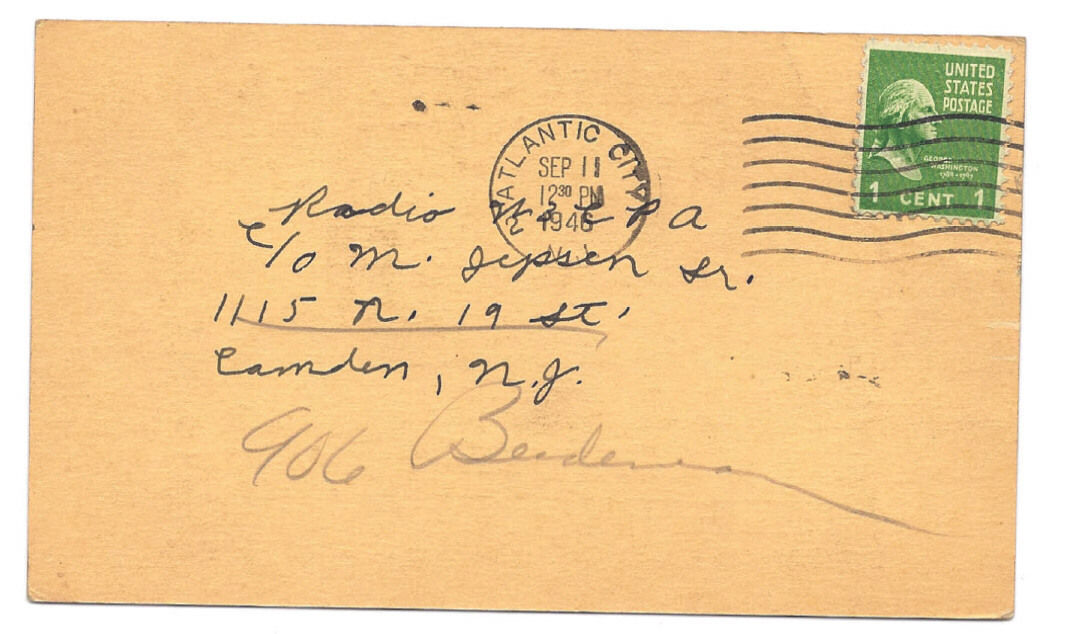 UNITED
STATES
POSTAGE
GEORGE
WASHINGTON
1789-1797
1 CENT 1
ATLANTIC CITY
SEP 11
12 30 PM
1946
N.J.
2
Radio W3 PA
c/o M. Jepsen Sr.
1115 N. 19 St.
Camden, N.J.
906